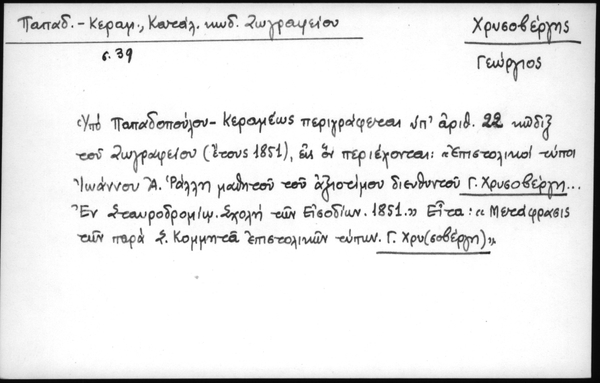 Παπαδ. - Κεραμ., Καταλ. κωδ. Ζωγραφείου
Χρυσοβέργης
σ. 39
Γεώργιος
Ὑπὸ Παπαδοπούλου - Κεραμέως περιγράφεται ὑπ' ἀριθ. 22 κῶδιξ
τοῦ Ζωγραφείου (ἔτους 1851), ἐν ᾧ περιέχονται: «Ἐπιστολικοὶ τύποι
Ἰωάννου Ἀ. Ῥάλλη μαθητοῦ τοῦ ἀξιοτίμου διευθυντοῦ Γ. Χρυσοβέργη...
Ἐν Σταυροδρομίῳ. Σχολὴ τῶν Εἰσοδίων. 1851.» Εἶτα: «Μετάφρασις
τῶν παρὰ Σ. Κομμητᾶ ἐπιστολικῶν τύπων. Γ. Χρυ(σοβέργη)».